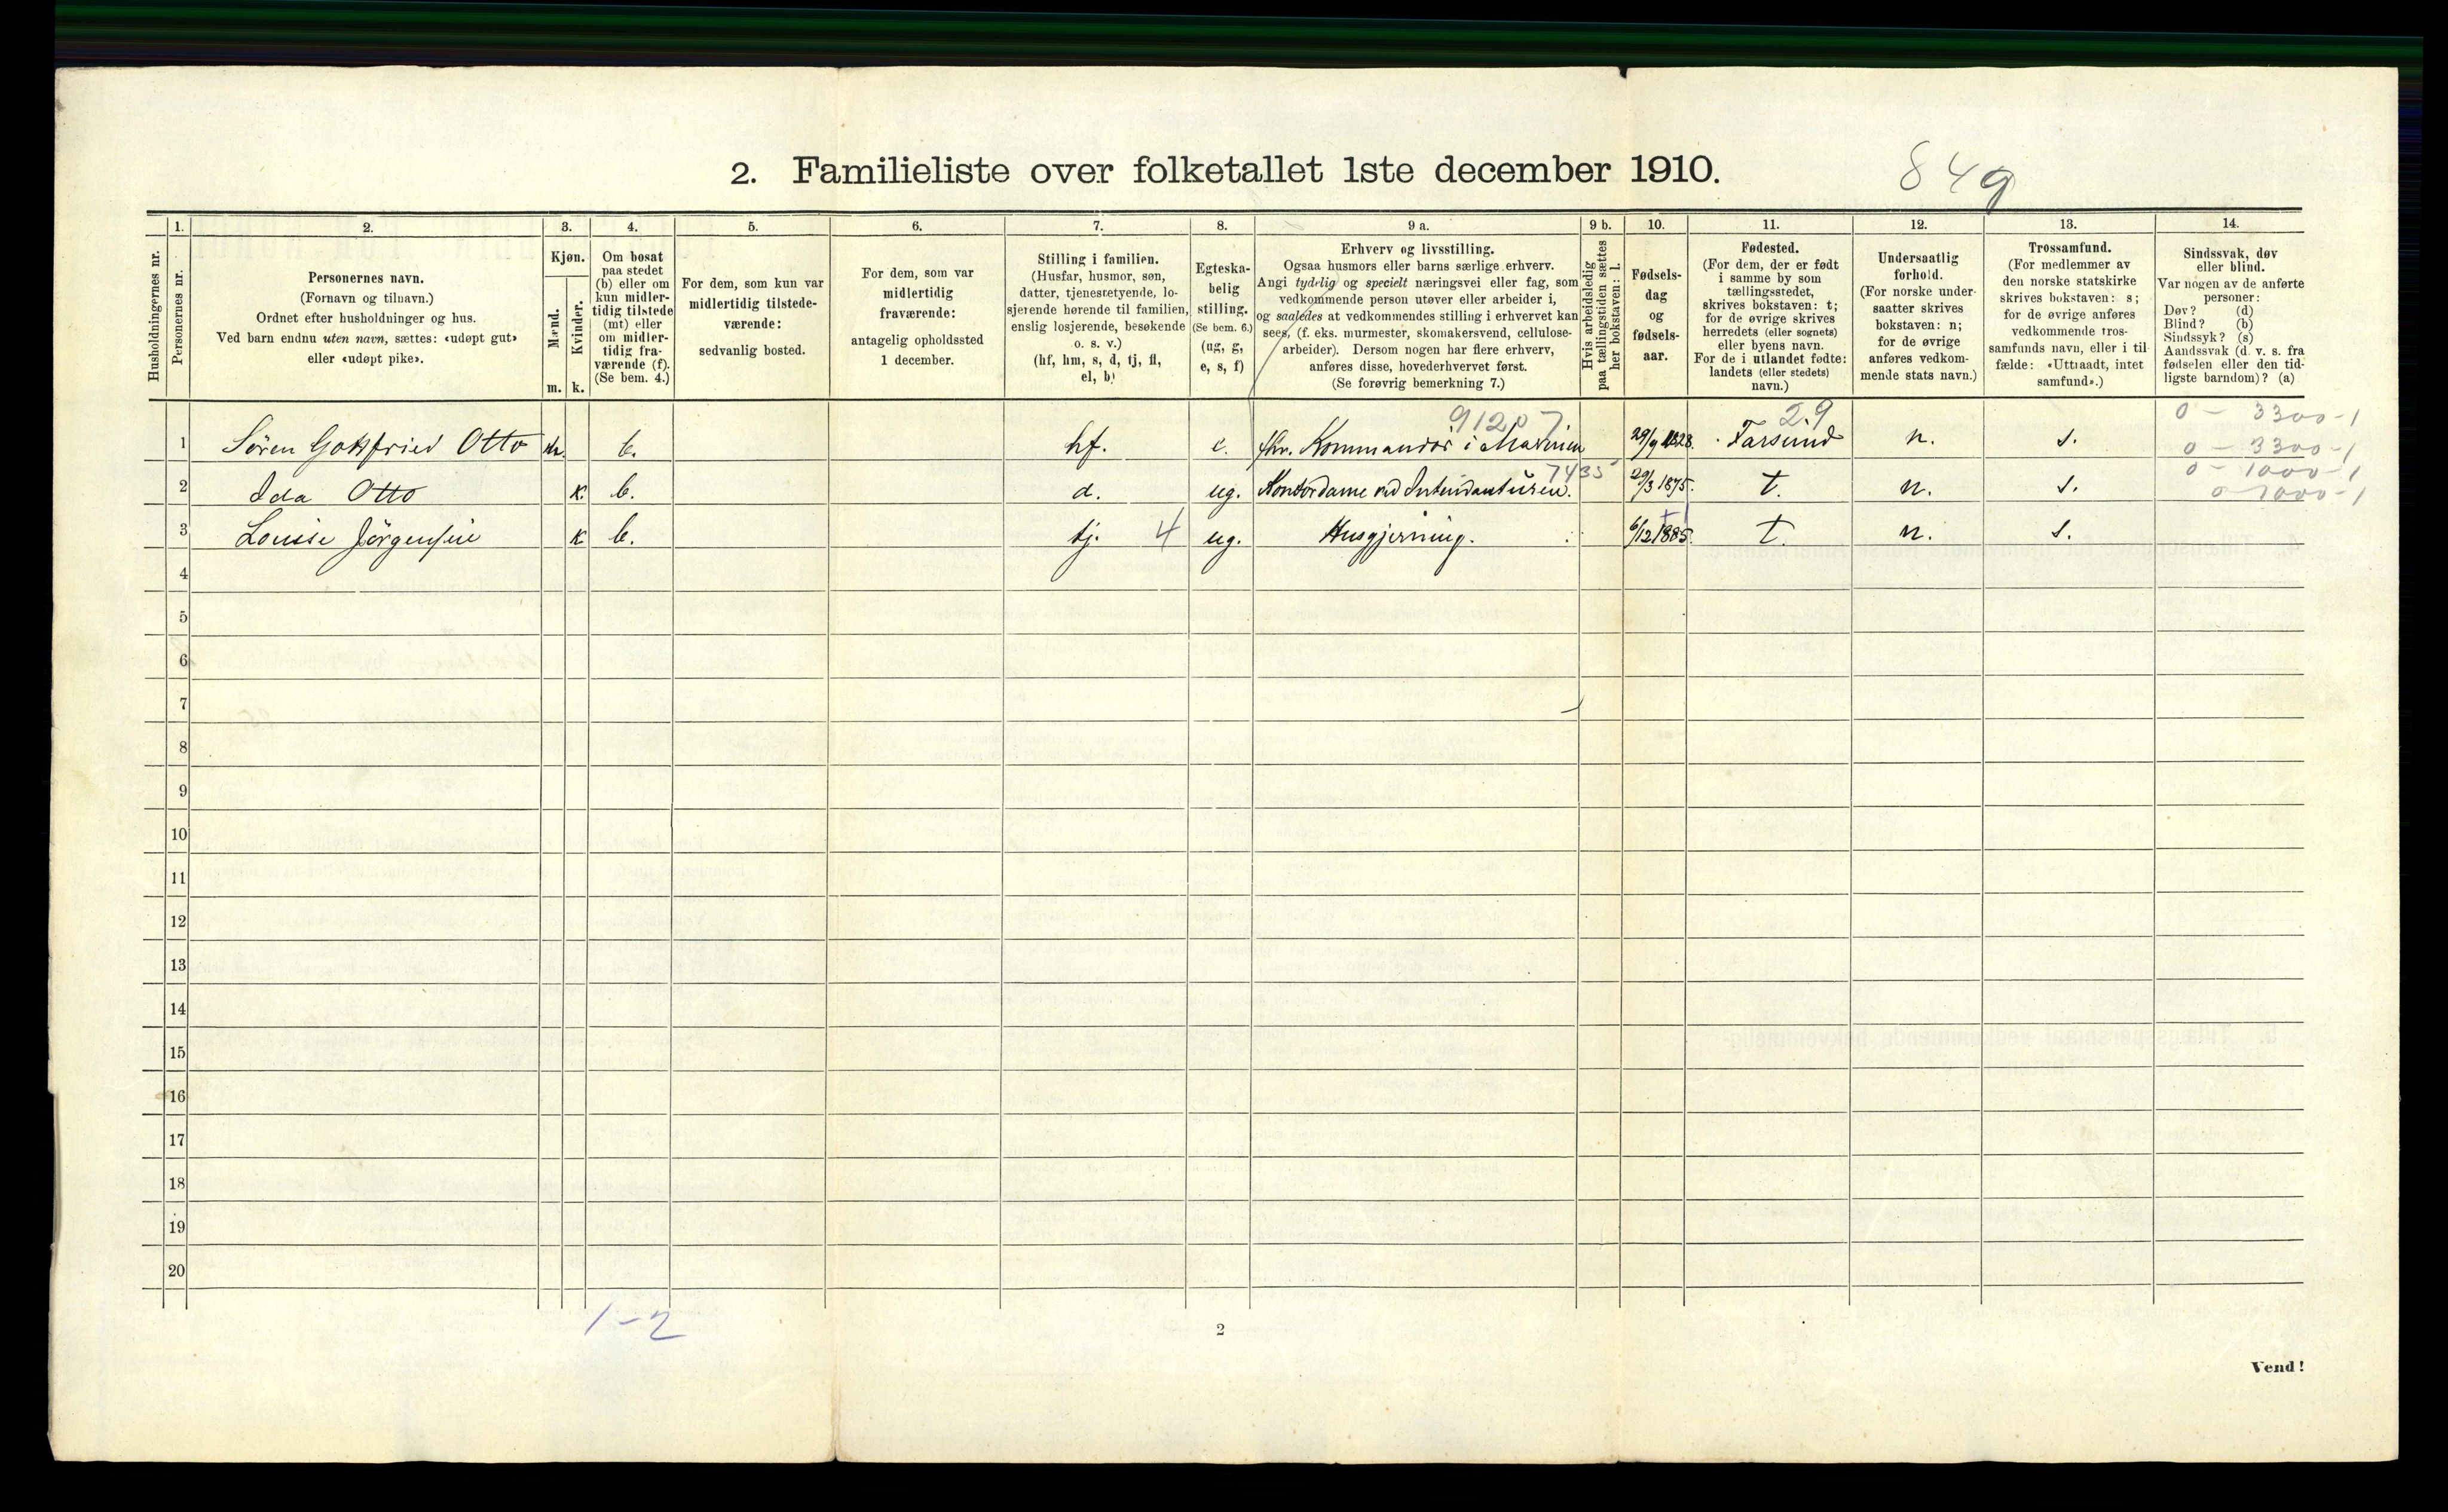 2. Familieliste over folketallet 1ste december 1910.
849
1. 2. 3. 4. 5. 6. 7. 8. 9 a. 9 b. 10. 11. 12. 13. 14.
Husholdningernes nr.
Personernes nr.
Personernes navn.
(Fornavn og tilnavn.)
Ordnet efter husholdninger og hus.
Ved barn endnu uten navn, sættes: «udøpt gut»
eller «udøpt pike».
Kjøn.
Mænd.
Kvinder.
m. k.
Om bosat
paa stedet
(b) eller om
kun midler-
tidig tilstede
(mt) eller
om midler-
tidig fra-
værende (f).
(Se bem. 4.)
For dem, som kun var
midlertidig tilstede-
værende:
sedvanlig bosted.
For dem, som var
midlertidig
fraværende:
antagelig opholdssted
1 december.
Stilling i familien.
(Husfar, husmor, søn,
datter, tjenestetyende, lo-
sjerende hørende til familien,
enslig losjerende, besøkende
o. s. v.)
(hf, hm, s, d, tj, fl,
el, b)
Egteska-
belig
stilling.
(Se bem. 6.)
(ug, g,
e, s, f)
Erhverv og livsstilling.
Ogsaa husmors eller barns særlige erhverv.
Angi tydelig og specielt næringsvei eller fag, som
vedkommende person utøver eller arbeider i,
og saaledes at vedkommendes stilling i erhvervet kan
sees, (f. eks. murmester, skomakersvend, cellulose-
arbeider). Dersom nogen har flere erhverv,
anføres disse, hovederhvervet først.
(Se forøvrig bemerkning 7.)
Hvis arbeidsledig
paa tællingstiden sættes
her bokstaven: l.
Fødsels-
dag
og
fødsels-
aar.
Fødested.
(For dem, der er født
i samme by som
tællingsstedet,
skrives bokstaven: t;
for de øvrige skrives
herredets (eller sognets)
eller byens navn.
For de i utlandet fødte:
landets (eller stedets)
navn.)
Undersaatlig
forhold.
(For norske under-
saatter skrives
bokstaven: n;
for de øvrige
anføres vedkom-
mende stats navn.)
Trossamfund.
(For medlemmer av
den norske statskirke
skrives bokstaven: s;
for de øvrige anføres
vedkommende tros-
samfunds navn, eller i til-
fælde: «Uttraadt, intet
samfund».)
Sindssvak, døv
eller blind.
Var nogen av de anførte
personer:
Døv? (d)
Blind? (b)
Sindssyk? (s)
Aandssvak (d. v. s. fra
fødselen eller den tid-
ligste barndom)? (a)
91207 29 0 - 3300-1
1 Sören Gottfried Otto m. b. hf. e. fhv. Kommandör i Marinen 29/9 1828. Farsund n. s. 0 - 3300-1
7435 0 - 1000-1
2 Ida Otto k. b. d. ug. Kontordame ved Intendanturen. 29/3 1875. t. n. s. 0 - 1000-1
3 Louise Jörgensen k b. tj. 4 ug. Husgjerning. 6/12 1885. t. n. s.
4
5
6
7
8
9
10
11
12
13
14
15
16
17
18
19
20
1-2
2
Vend!